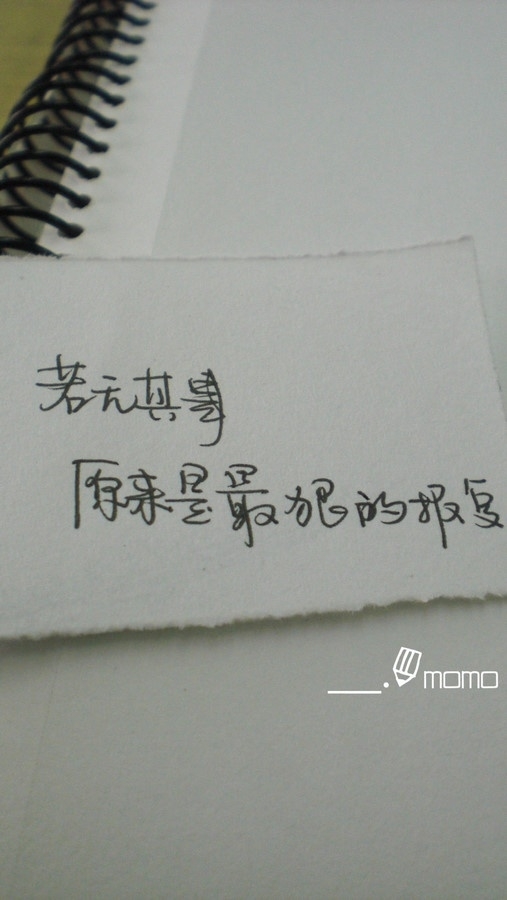 若无其事
原来是最狠的报复
____. momo